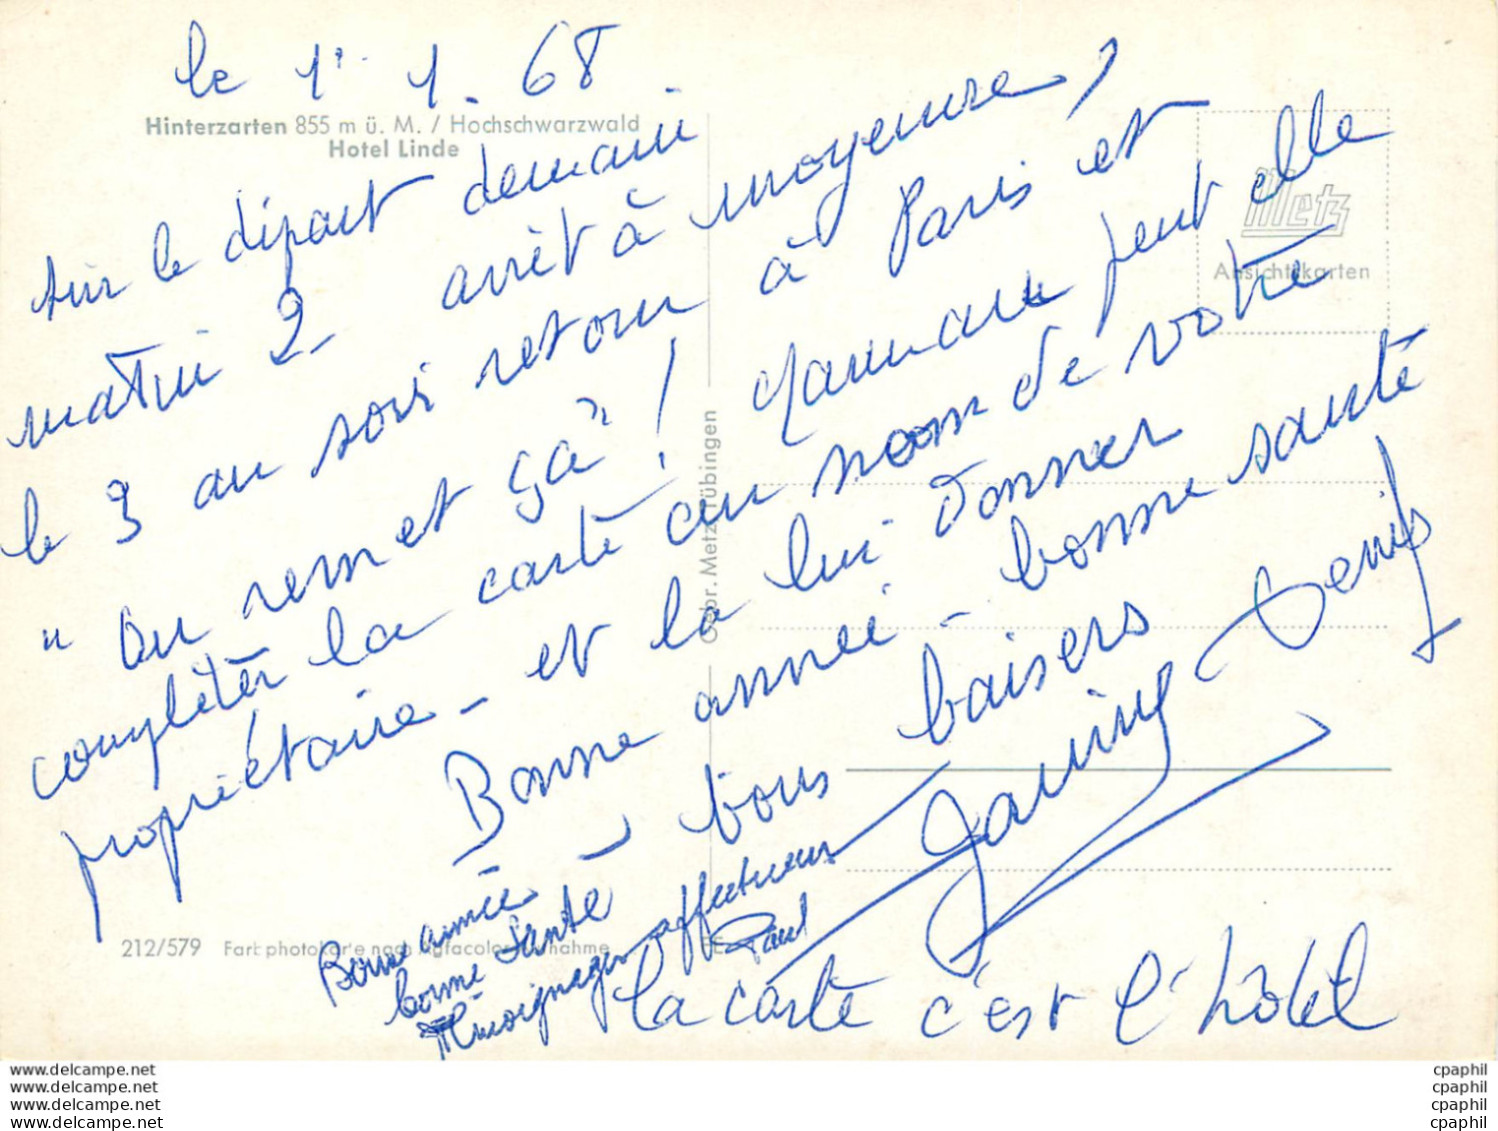 le 1er 1. 68
Hinterzarten 855 m ü. M. / Hochschwarzwald
Hotel Linde
sur le départ demain
matin 2 arrêt à moyeuvre,
le 3 au soir retour à Paris et
"on remet ça"! maman peut elle
complèter la carte au nom de votre
propriétaire - et la lui donner
Bonne année - bonne santé
bons baisers Denis
Janine
Bonne année
bonne Santé
Témoignages affectueux
Paul
la carte c'est l'hôtel
Metz
Ansichtskarten
Gebr. Metz Tübingen
212/579 Farbphotokarte nach Agfacolor-Aufnahme
www.delcampe.net
www.delcampe.net
www.delcampe.net
www.delcampe.net
cpaphil
cpaphil
cpaphil
cpaphil